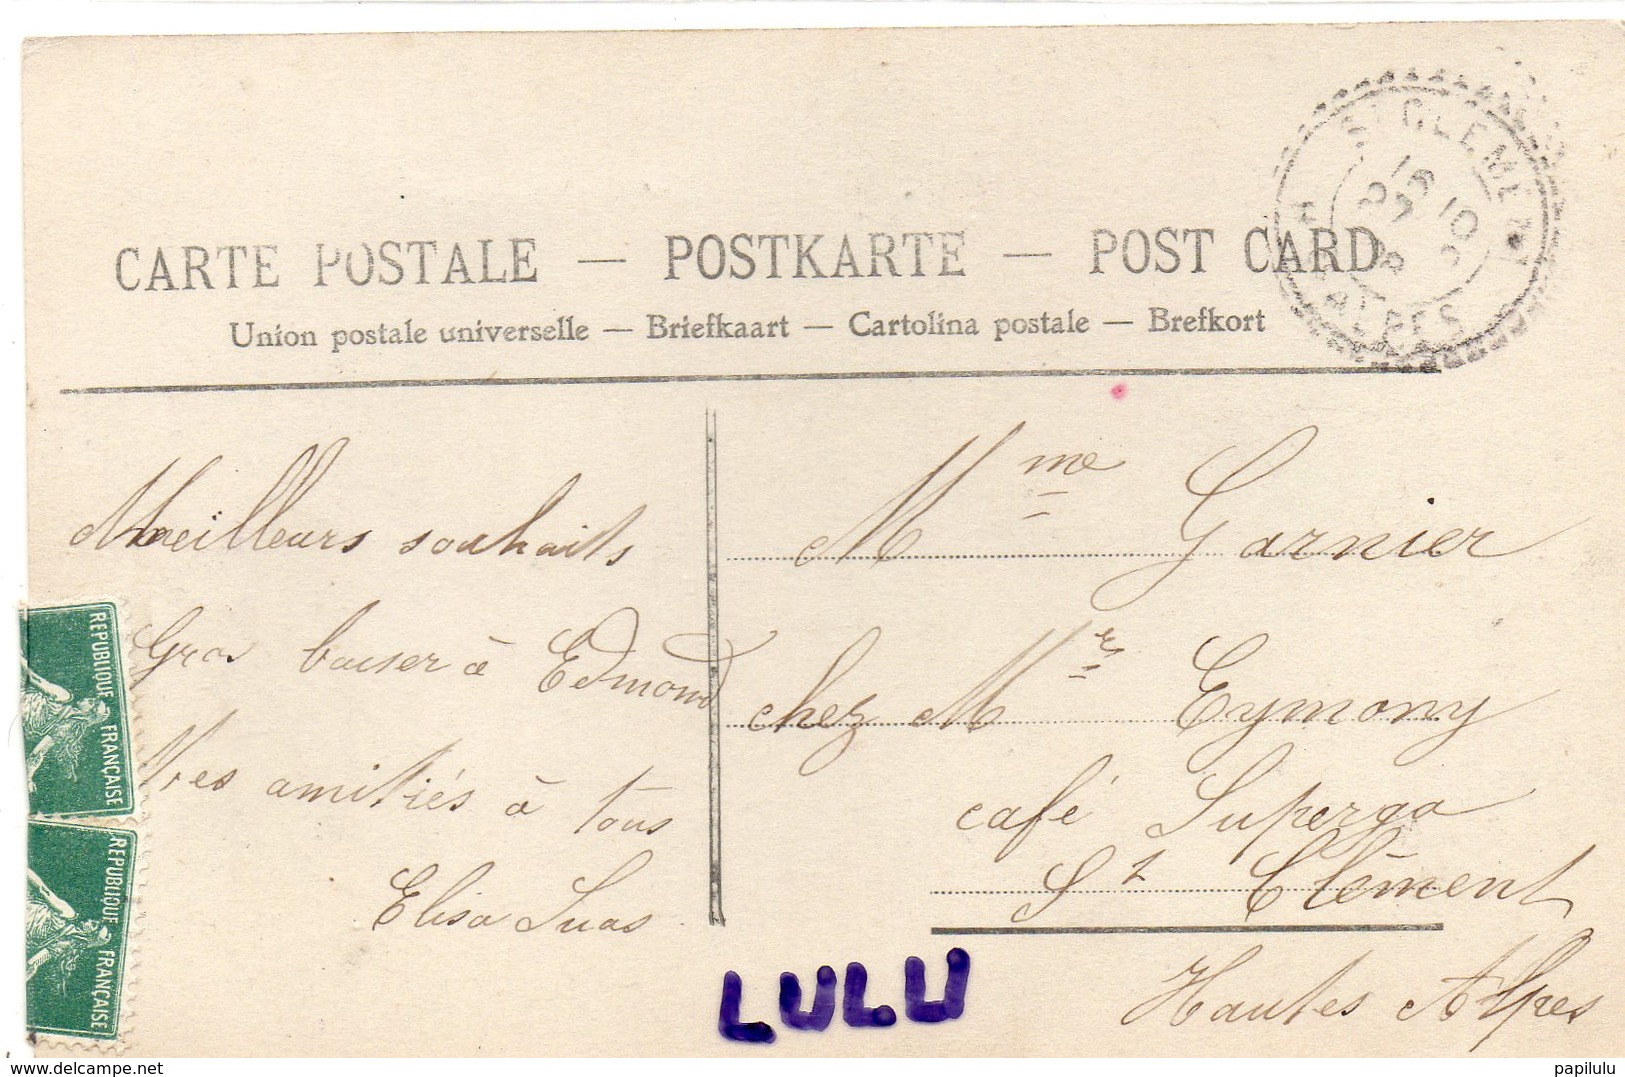 CARTE POSTALE — POSTKARTE — POST CARD
Union postale universelle — Briefkaart — Cartolina postale — Brefkort
ST CLEMENT
Htes ALPES
Meilleurs souhaits
Gros baiser à Edmond
Mes amitiés à tous
Elisa
Mme Garnier
chez Mr Eymony
café Superga
St Clément
Hautes Alpes
REPUBLIQUE FRANÇAISE
REPUBLIQUE FRANÇAISE
LULU
https://www.delcampe.net
papilulu